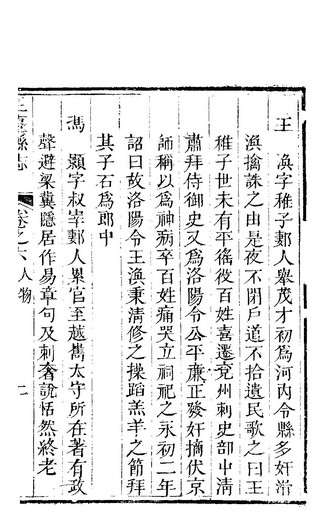 王　渙字稚子郪人舉茂才初爲河內令縣多奸滑
渙擒誅之由是夜不閉戶道不拾遺民歌之曰王
稚子世未有平徭役百姓喜遷兗州刺史部中淸
肅拜侍御史又爲洛陽令公平廉正發奸摘伏京
師稱以爲神病卒百姓痛哭立祠祀之永初二年
詔曰故洛陽令王渙秉淸修之操蹈羔羊之節拜
其子石爲郎中
馮　顥字叔宰郪人累官至越嶲太守所在著有政
聲避梁冀隱居作易章句及刺奢說恬然終老
縣志
卷之六人物